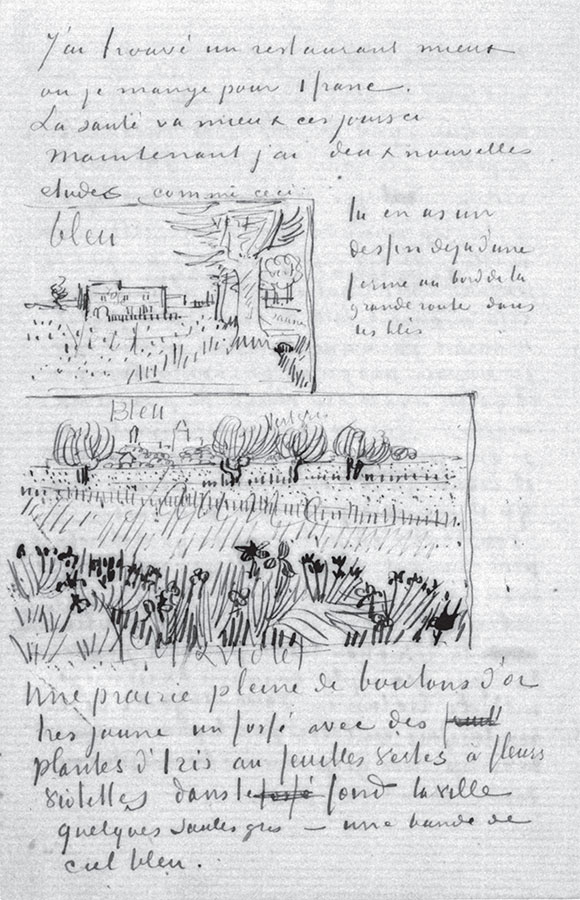 J'ai trouvé un restaurant mieux
ou je mange pour 1 franc.
La santé va mieux ces jours ci
maintenant j'ai deux nouvelles
etudes comme ceci
tu en as un
dessin deja d'une
ferme au bord de la
grande route dans
les blés
bleu
vert
jaune
Bleu
Vert gris
Violet
Une prairie pleine de boutons d'or
tres jaune un fossé avec des
plantes d'Iris au feuilles vertes à fleurs
violettes dans le fossé fond la ville
quelques saules gris — une bande de
ciel bleu.